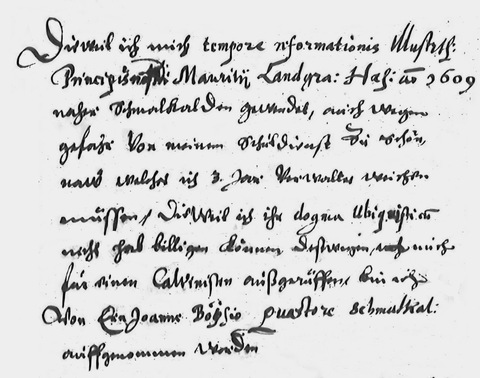 Dieweil ich mich tempore reformationis Illustrth:
Principis Mauritij Landgra: Haß: aō 1609
naher Schmalkalden gewendet, auch wegen
gefahr von meinem Schuldienst zu Schön
naw welches ich 3. Jar verwaltet weichen
müssen, Dieweil ich ihr dogma Ubiquisticū
nicht hab billigen können deßwegen mich
für einen Calvinisten außgeruffen, bin ich
Von Ern Joanne Böÿsio quæstore Schmalkal:
auffgenommen worden